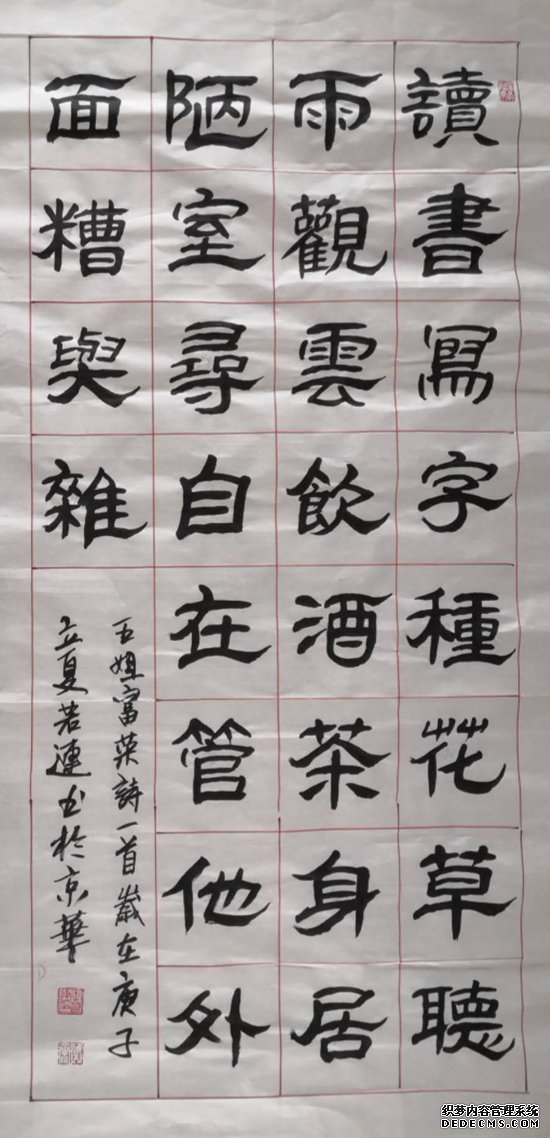 讀書寫字種花草聽
雨觀雲飲酒茶身居
陋室尋自在管他外
面糟與雜
五姐富荣詩一首歲在庚子
立夏若連书於京華
织梦内容管理系统
DEDECMS.COM